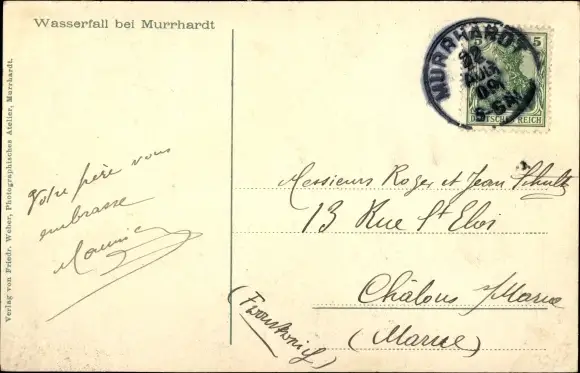 Wasserfall bei Murrhardt
MURRHARDT
22
AUG
09
5-6N.
5 5
DEUTSCHES REICH
Verlag von Friedr. Weber, Photographisches Atelier, Murrhardt.
Votre père vous
embrasse
Maurice
Messieurs Roger et Jean Schultz
13 Rue St Eloi
Châlons s/Marne
(Marne)
(Frankreich)